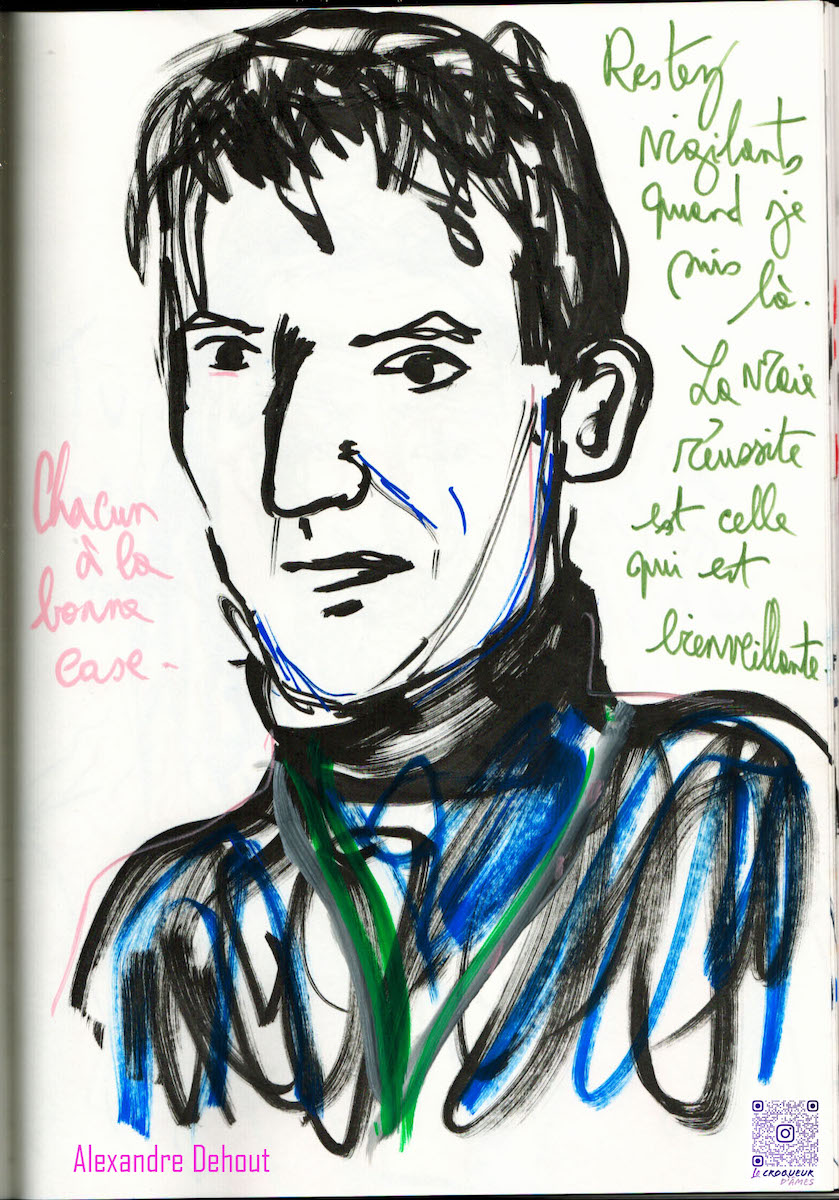 Restez
vigilants
quand je
suis
là.
La vraie
réussite
est celle
qui est
bienveillante.
Chacun
à la
bonne
case.
Alexandre Dehout
Le CROQUEUR
D'ÂMES